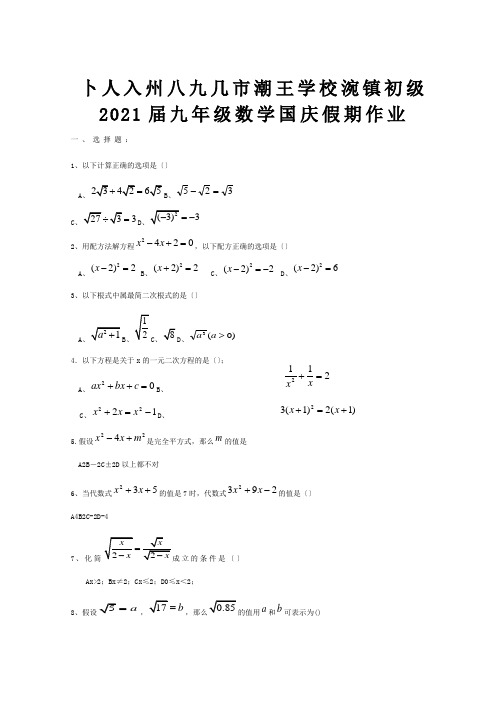 卜人入州八九几市潮王学校涴镇初级
2021届九年级数学国庆假期作业
一、选择题：
1、以下计算正确的选项是〔〕
A、2√3+4√2=6√5B、√5−√2=√3
C、√27÷√3=3D、√(−3)²=−3
2、用配方法解方程x²−4x+2=0，以下配方正确的选项是〔〕
A、(x−2)²=2 B、(x+2)²=2 C、(x−2)²=−2 D、(x−2)²=6
3、以下根式中属最简二次根式的是〔〕
A、√(a²+1)B、√(1/2)C、√8D、√a³(a>0)
4．以下方程是关于x的一元二次方程的是〔〕;
A、ax²+bx+c=0B、1/x²+1/x=2
C、x²+2x=x²−1D、3(x+1)²=2(x+1)
5.假设x²−4x+m²是完全平方式，那么m的值是
A2B－2C±2D以上都不对
6、当代数式x²+3x+5的值是7时，代数式3x²+9x−2的值是〔〕
A4B2C-2D-4
7、化简√(x/(2−x))=√x/√(2−x)成立的条件是〔〕
Ax>2；Bx≠2；Cx≤2；D0≤x＜2；
8、假设√5=a，√17=b，那么√0.85的值用a和b可表示为()